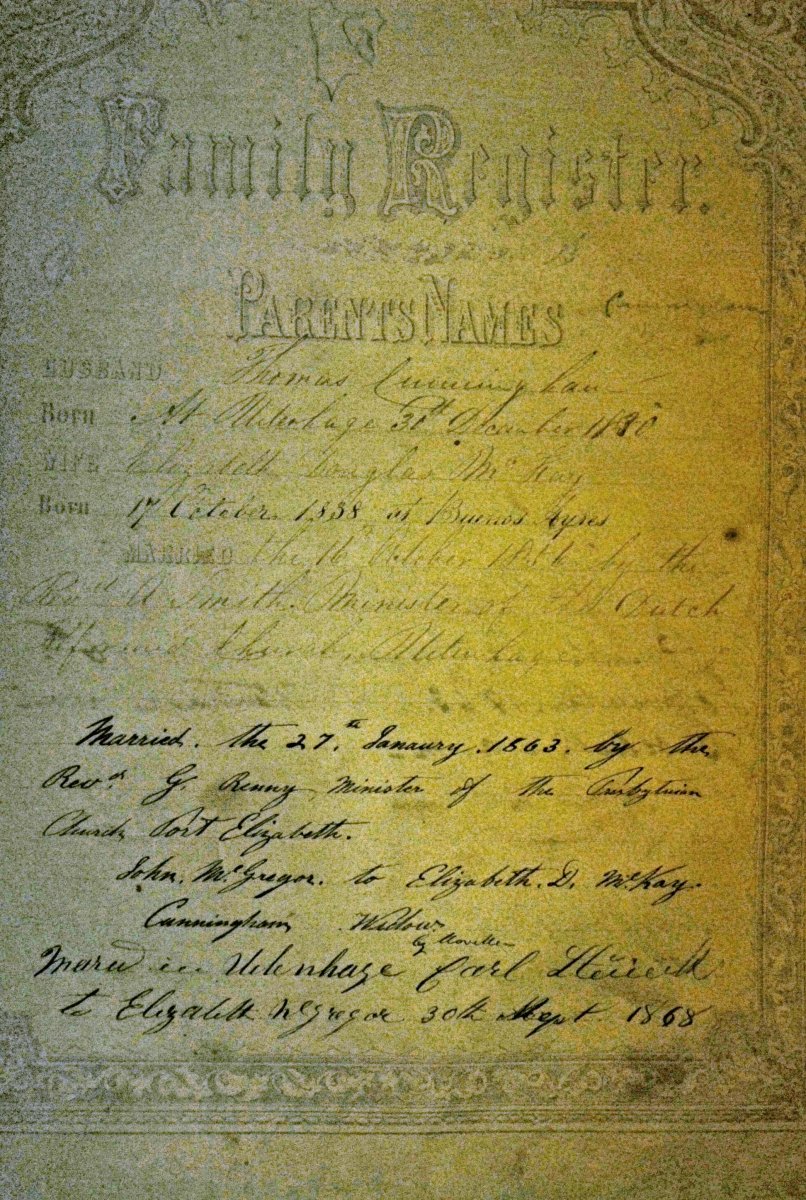 Family Register.
PARENTS NAMES
HUSBAND Thomas Cunningham
Born At Uitenhage 30th December 1830
WIFE Elizabeth Douglas McKay
Born 17 October 1838 at Buenos Ayres
MARRIED the 16 October 1856 by the
Revd A Smith Minister of the Dutch
Reformed Church, Uitenhage
Married. the 27th. Janaury. 1863. by the
Revd. G. Renny Minister of the Presbyterian
Church Port Elizabeth.
John. McGregor. to Elizabeth. D. McKay.
Cunningham Widow
by
in Utenhage Carl
to Elizabeth McGregor 30th Sept 1868